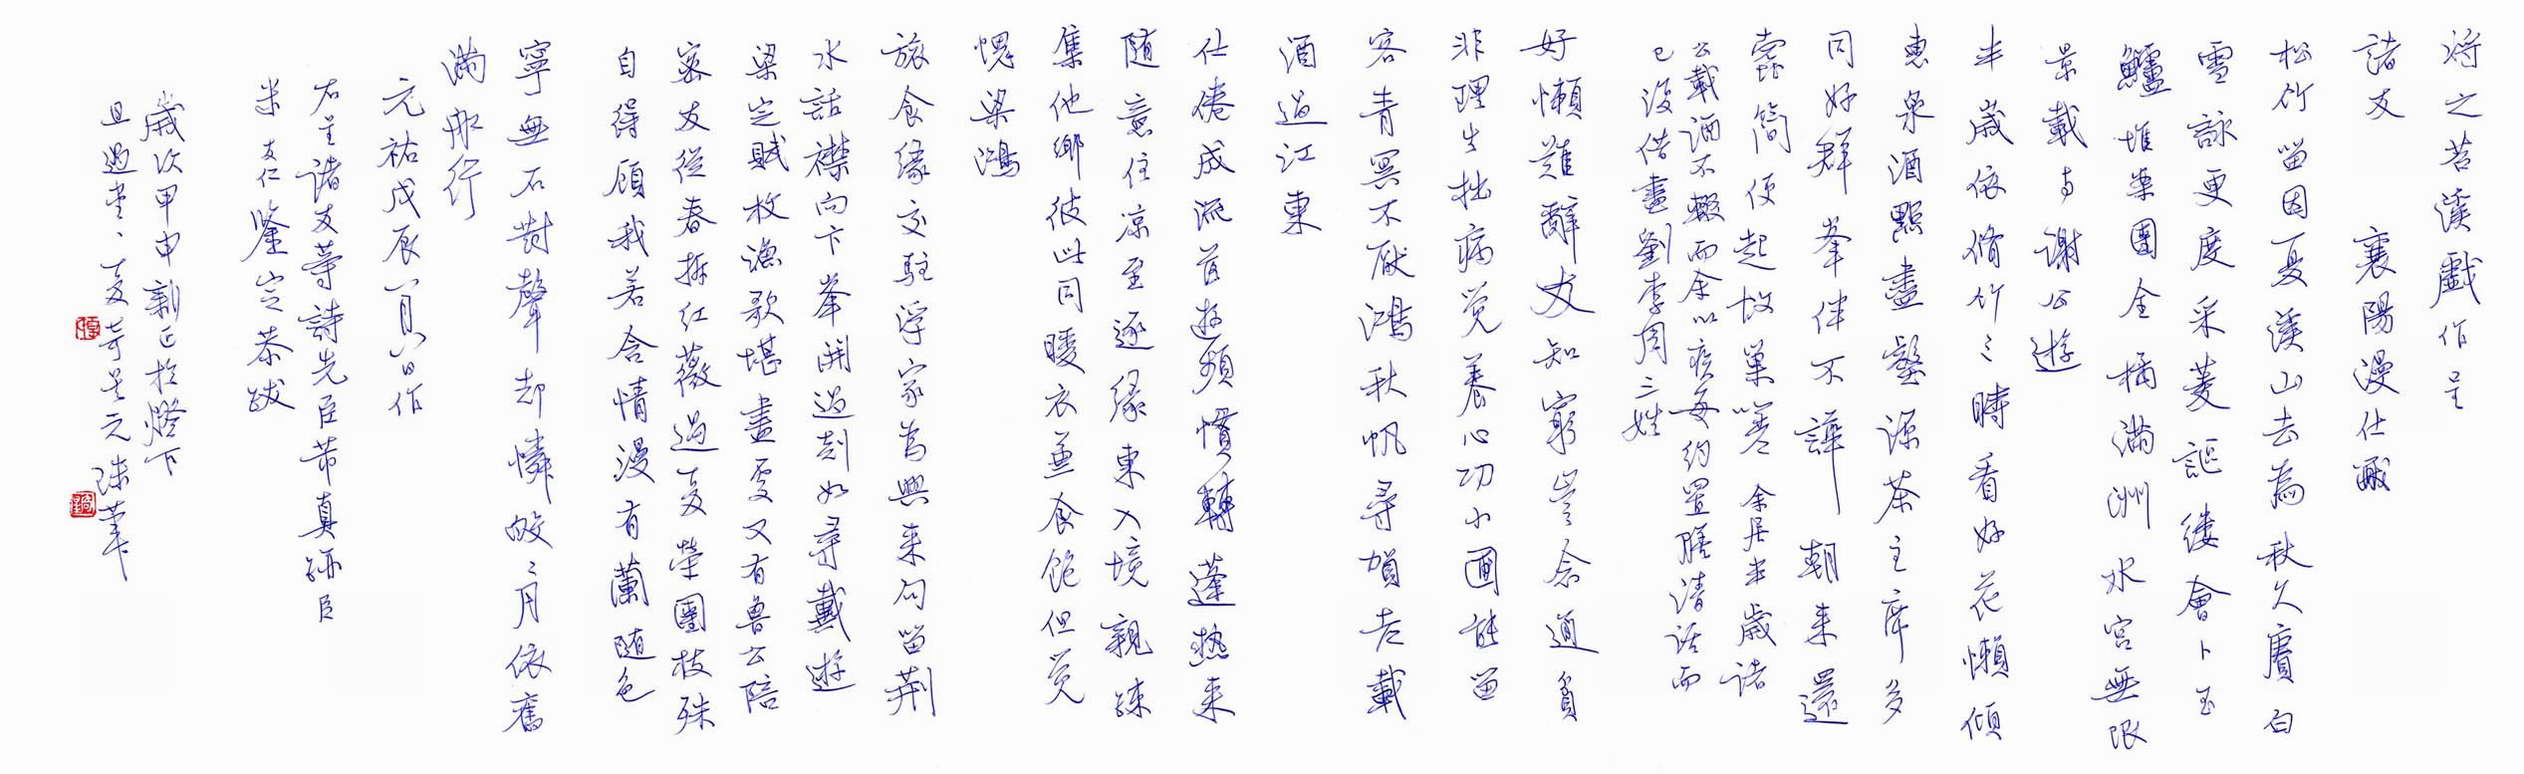 将之苕溪戲作呈
諸友 襄陽漫仕黻
松竹留因夏溪山去為秋久賡白
雪詠更度采菱謳縷會卜玉
鱸堆案團金橘滿洲水宮無限
景載与謝公遊
半歲依脩竹三時看好花懶傾
惠泉酒點盡壑源茶主席多
同好群峯伴不譁朝来還
蠹簡便起故巢嗟 余居半歲諸
公載酒不輟而余以疾每約置膳清話而
已復借書劉李周三姓
好懶難辭友知窮豈念通貧
非理生拙病覺養心功小圃能留
客青冥不厭鴻秋帆尋賀老載
酒過江東
仕倦成流落遊頻慣轉蓬热来
随意住凉至逐緣東入境親疎
集他鄉彼此同暖衣兼食飽但覺
愧梁鴻
旅食緣交駐浮家為興来句留荆
水話襟向卞峯開過剡如尋戴遊
梁定賦枚漁歌堪畫處又有魯公陪
密友從春拆紅薇過夏榮團枝殊
自得顧我若含情漫有蘭随色
寧無石對聲却憐皎〻月依舊
滿舡行
元祐戊辰八月八日作
右呈諸友等詩先臣芾真跡臣
米友仁鑒定恭跋
歲次甲申新正於燈下